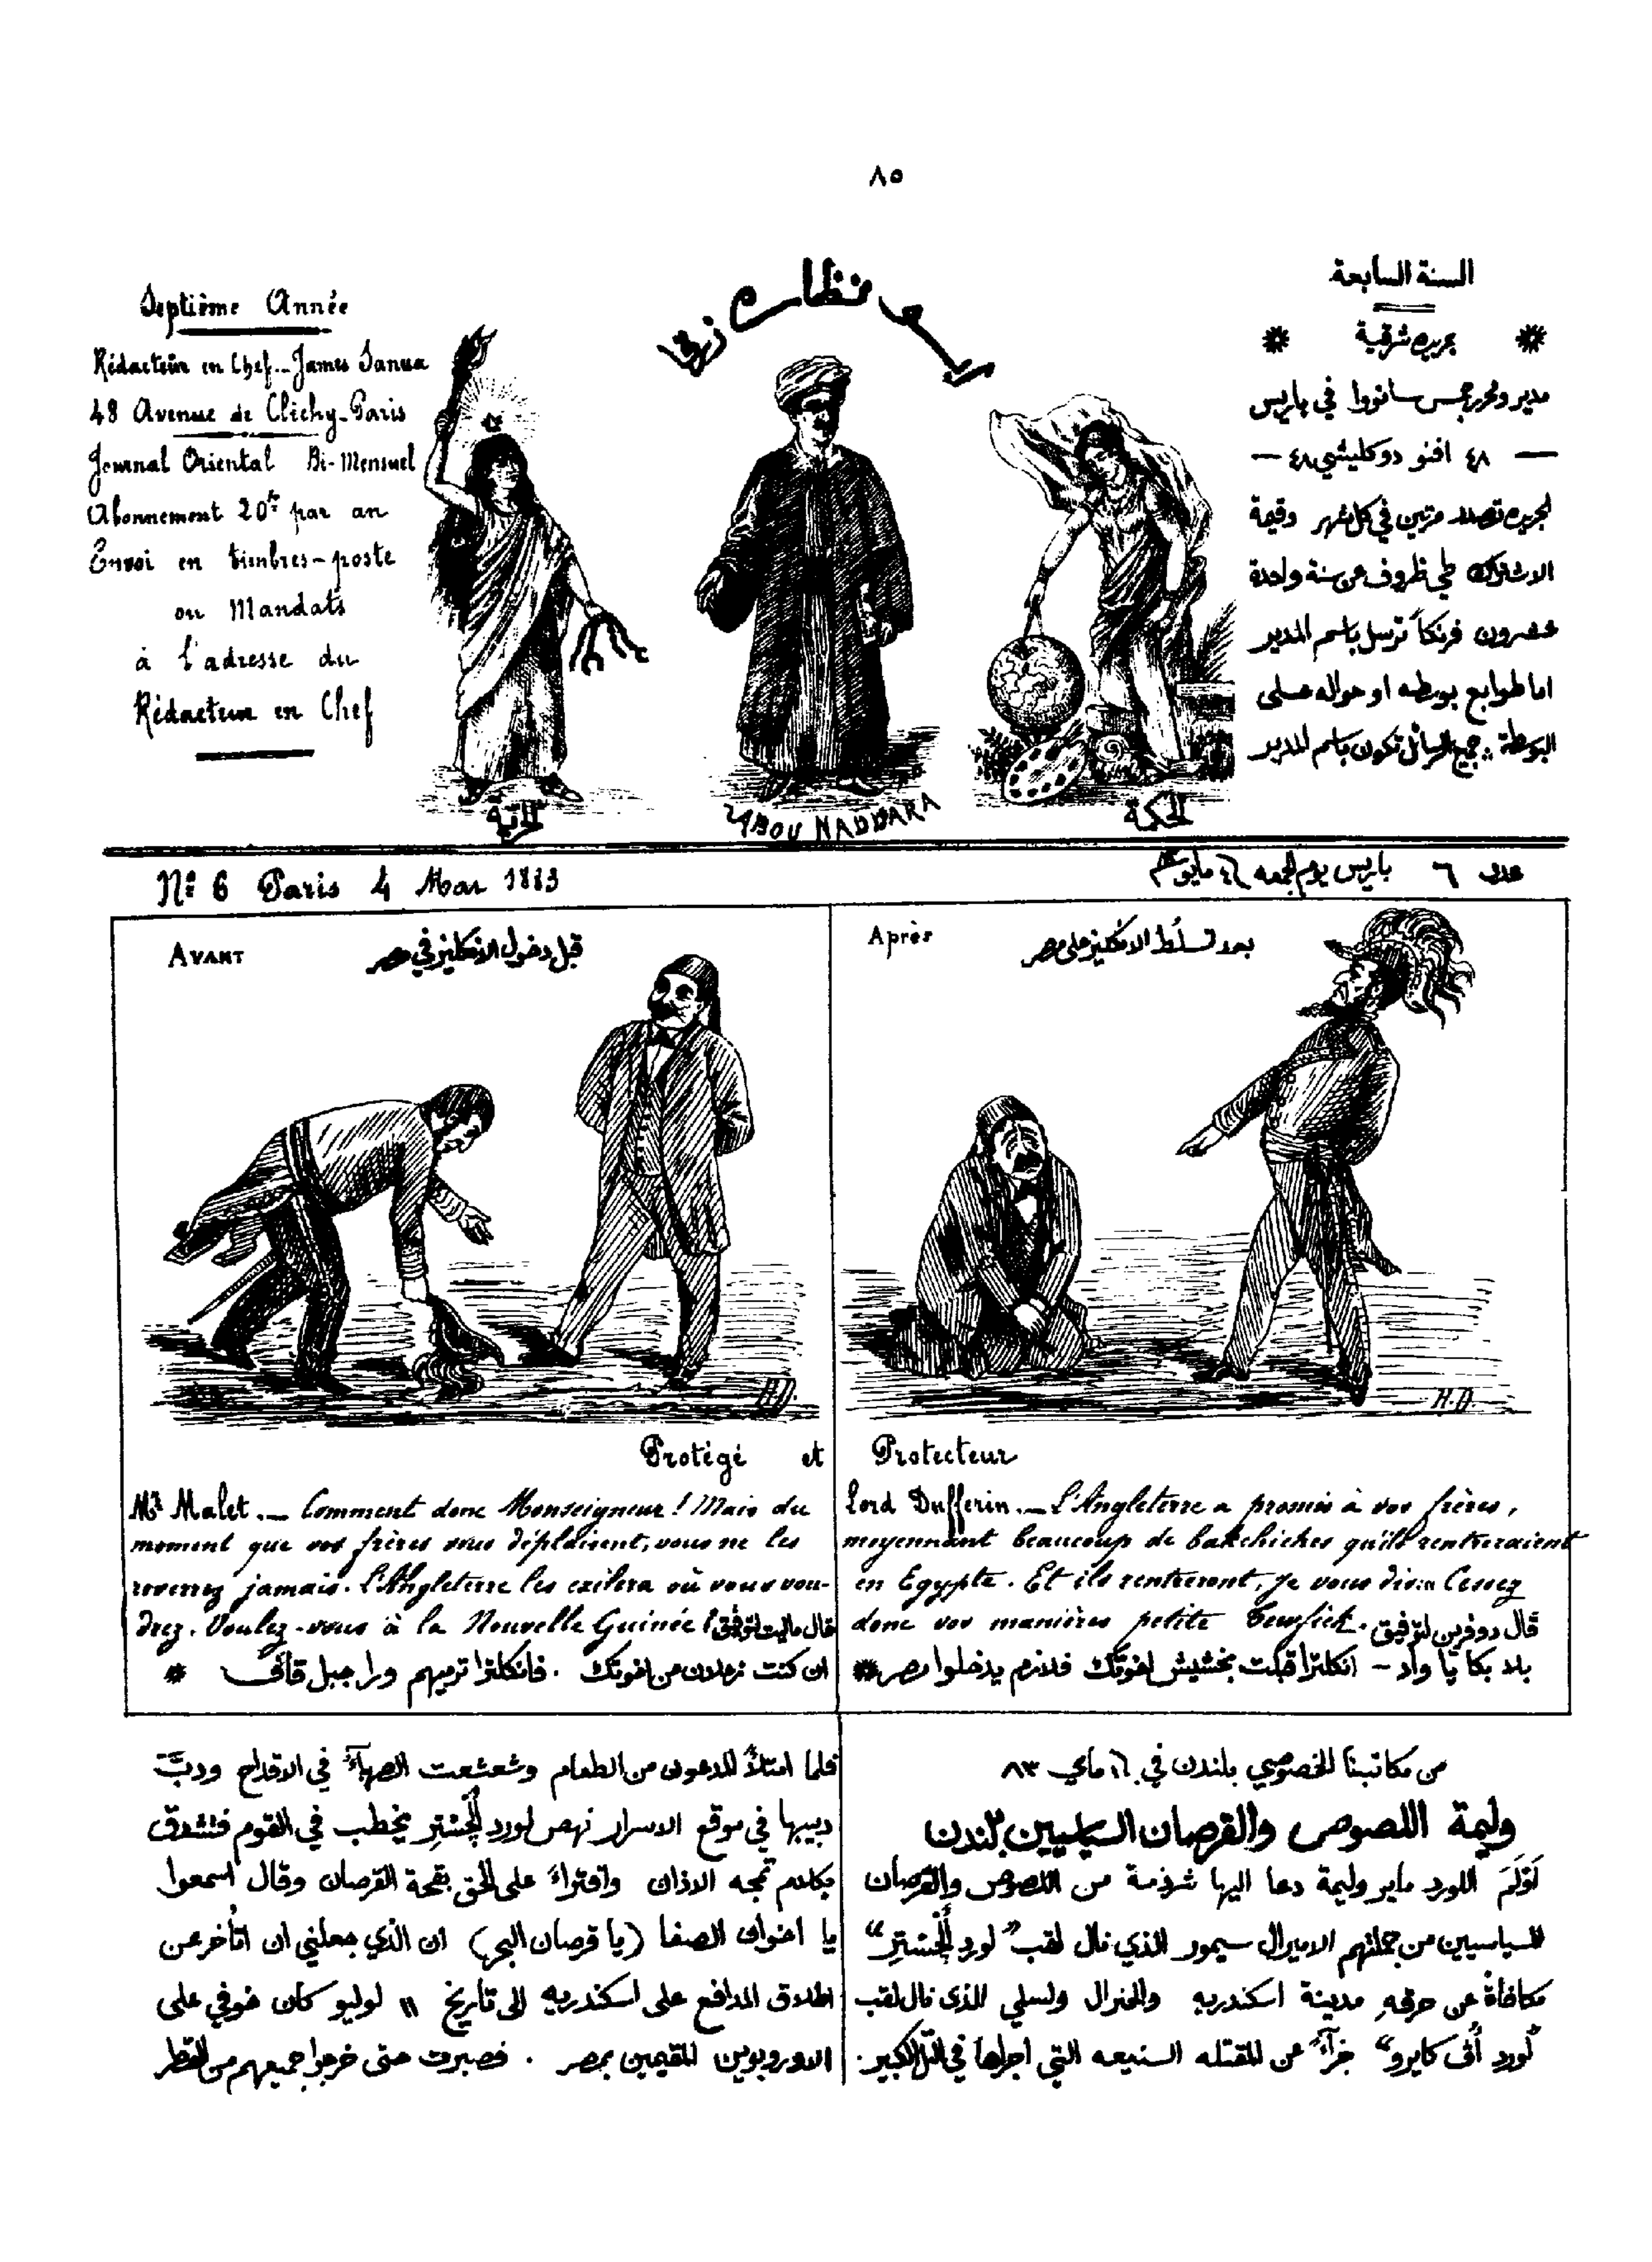 ٨٥
Septième Année
Rédacteur en Chef_ James Sanua
48 Avenue de Clichy_Paris
Journal Oriental Bi-Mensuel
Abonnement 20fr par an
Envoi en timbres-poste
ou Mandats
à l'adresse du
Rédacteur en Chef
ابو نظاره زرقا
السنة السابعة
جريده شرقية
مدير ومحرر جمس سانووا في باريس
— ٤٨ افنو دو كليشي ٤٨ —
الجريده تصدر مرتين في كل شهر وقيمة
الاشتراك طي ظروف عن سنة واحدة
عشرون فرنكاً ترسل باسم المدير
اما طوابع بوسطه او حواله على
البوسطة جميع الرسائل تكون باسم المدير
الحرية
ABOU NADDARA
الحكمة
No 6 Paris 4 Mai 1883
عدد ٦ باريس يوم الجمعه ٤ مايو
AVANT
قبل دخول الانكليز في مصر
Après
بعد تسلُط الانكليز على مصر
H.D.
H.D.
Protégé et Protecteur
Mr Malet._ Comment donc Monseigneur! Mais du
moment que vos frères vous déplaisent, vous ne les
reverrez jamais. L'Angleterre les exilera où vous vou-
drez. Voulez-vous à la Nouvelle Guinée! قال ماليت لتوفيق
ان كنت زعلان من اخوتك . فانكلترا ترميهم ورا جبل قاف
Lord Dufferin._ L'Angleterre a promis à vos frères,
moyennant beaucoup de bakchiches qu'ils rentreraient
en Egypte. Et ils rentreront, je vous dis: Cessez
donc vos manières petite Tewfick. قال دوفرين لتوفيق
بلا بكا يا واد – انكلترا قبلت بخشيش اخوتك فلازم يدخلوا مصر
من مكاتبنا الخصوصي بلندن في ماي ٨٣
وليمة اللصوص والقرصان السياسيين بلندن
اَوْلَمَ اللورد ماير وليمة دعا اليها شرذمة من اللصوص والقرصان
السياسيين من جملتهم الاميرال سيمور الذي نال لقب "لورد أَلْجِسْتِر"
مكافاةً عن حرقهِ مدينة اسكندريه والجنرال ولسلي الذي نال لقب
"لورد أُف كايرو" جزآءً عن المقتله الشنيعه التي اجراها في التل الكبير.
فلما امتلأ المدعون من الطعام وشعشعت الصهبآءُ في الاقداح ودبَّت
دبيبها في موقع الاسرار نهض لورد أَلْجِسْتِر يخطب في القوم فتشدق
بكلام تمجه الاذان وافتراءً على الحق بقحة القرصان وقال اسمعوا
يا اخوان الصفا (يا قرصان البحر) ان الذي جعلني ان اتأخر عن
اطلاق المدافع على اسكندريه الى تاريخ ١١ لوليو كان خوفي على
الاوروبويين المقيمين بمصر . فصبرت حتى خرجوا جميعهم من القطر